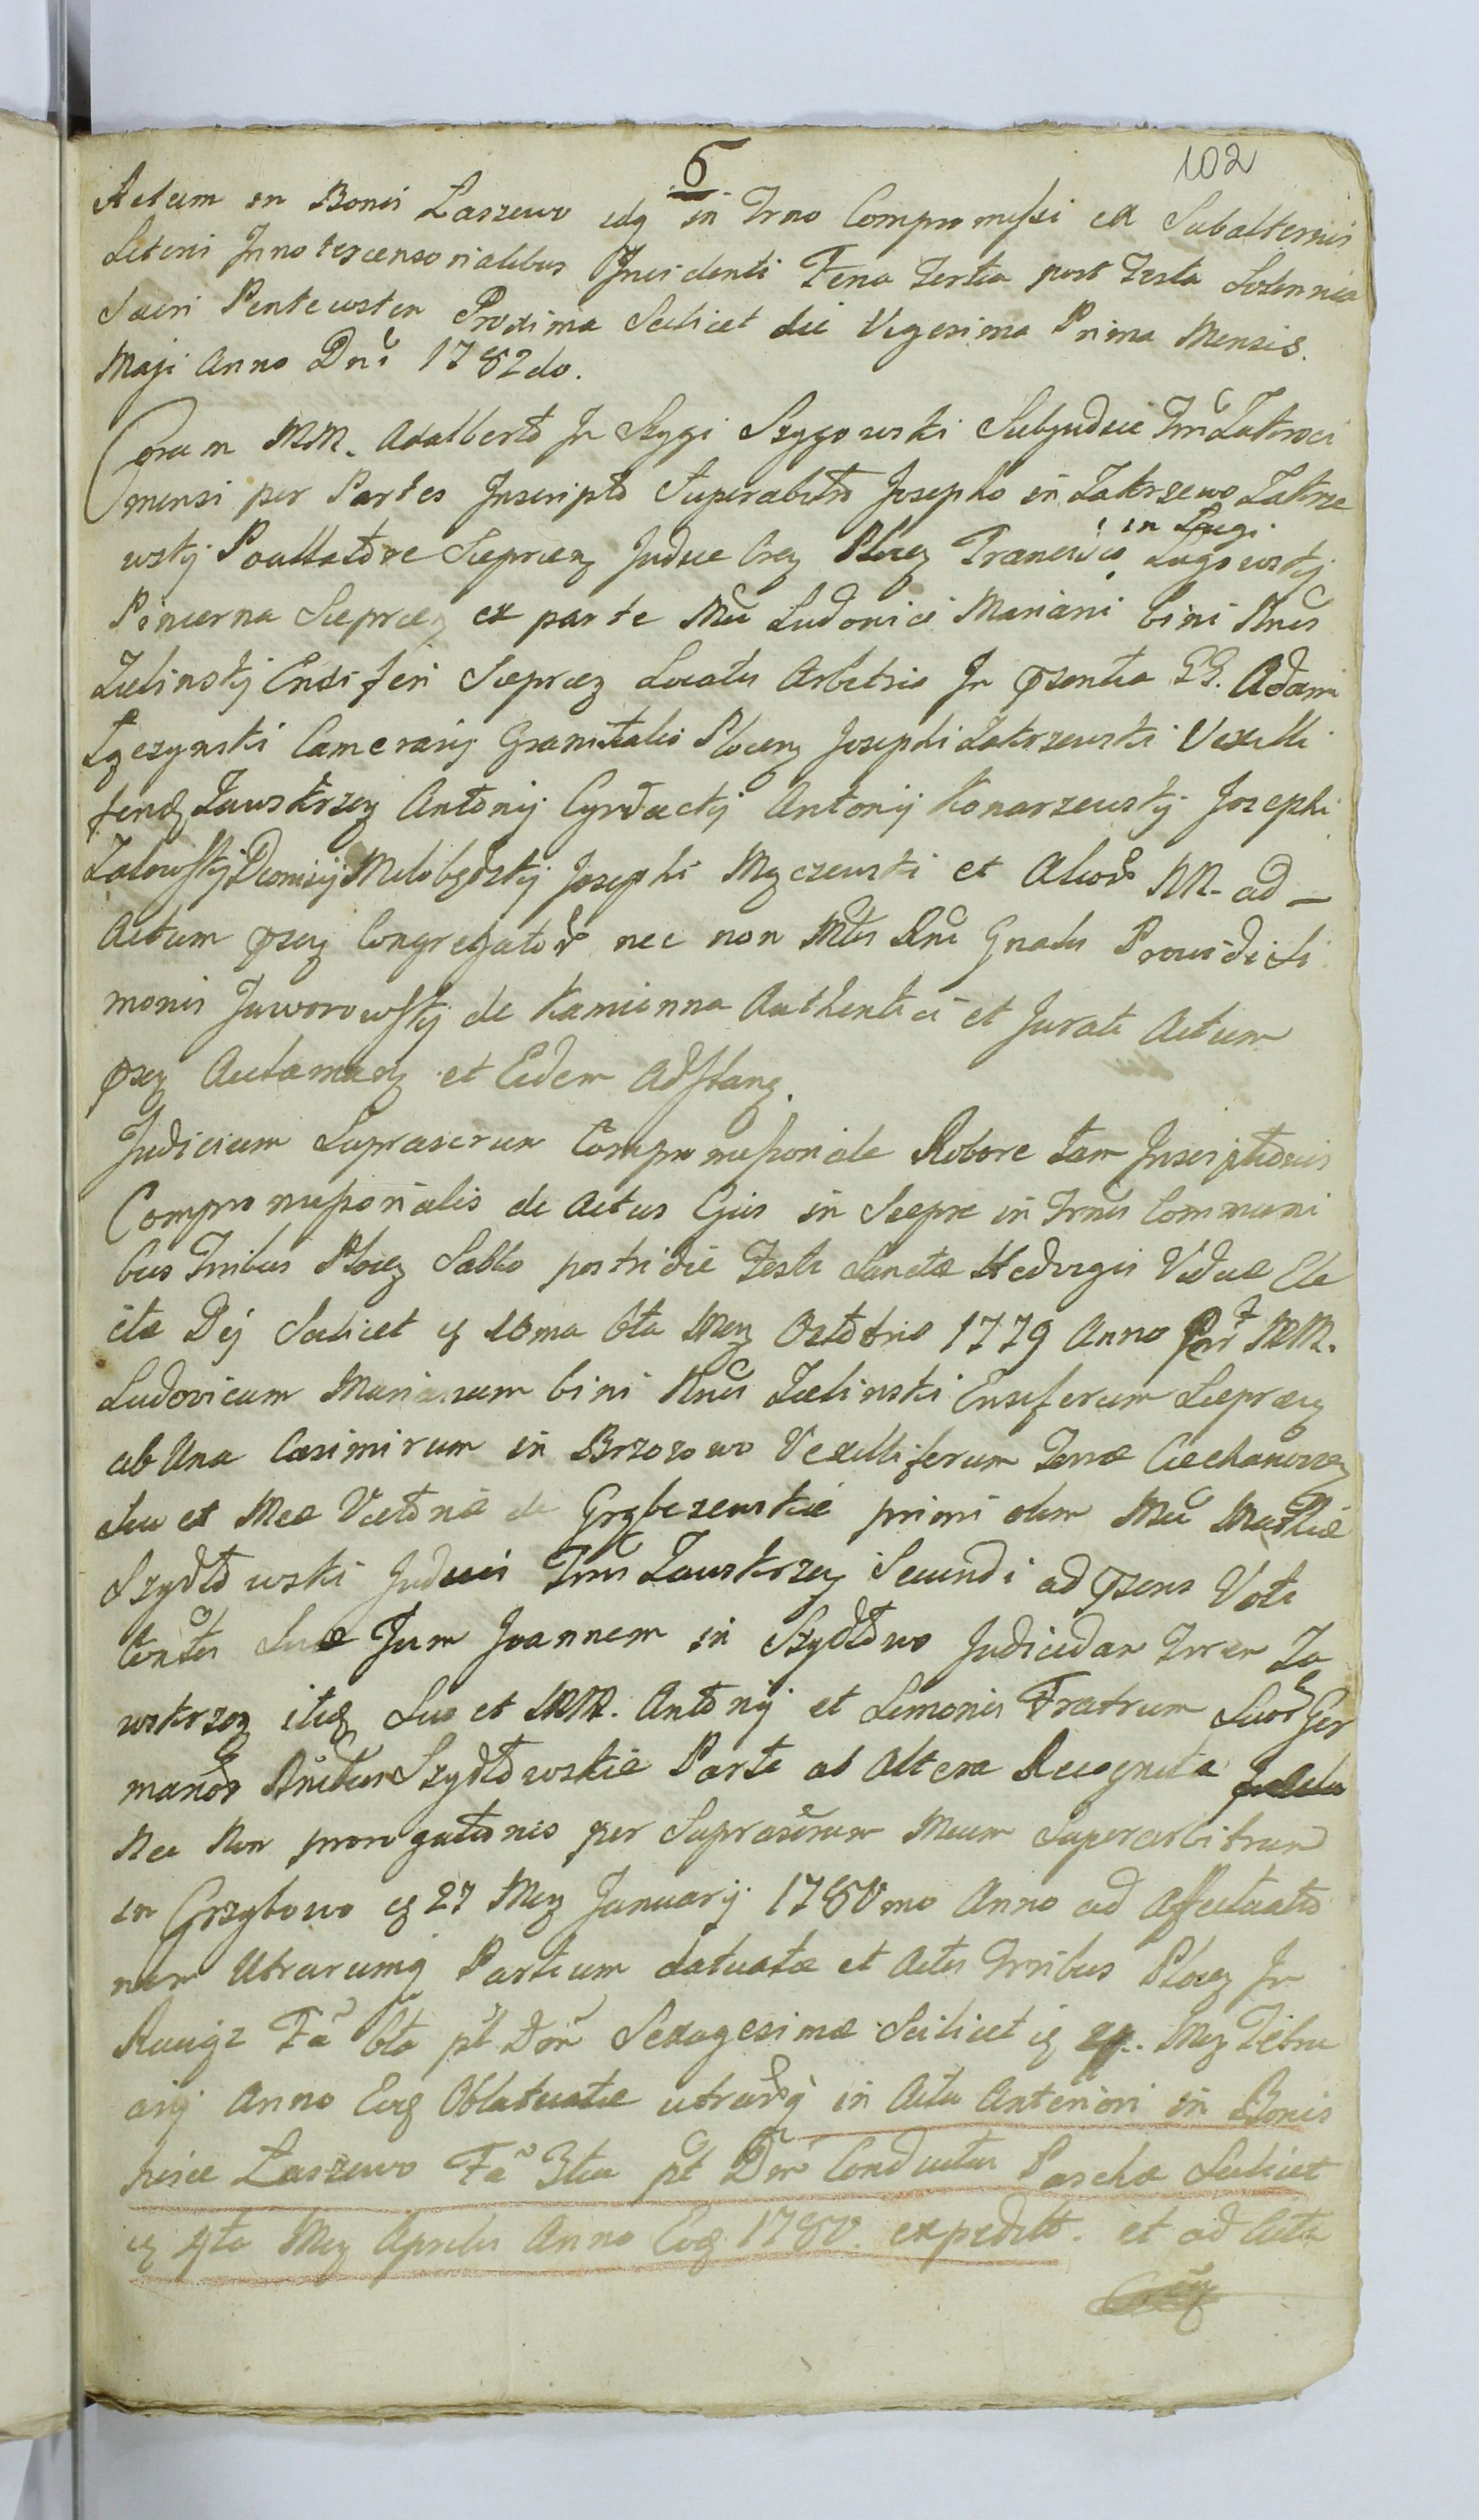 6
102
Actum in Bonis Łaszewo idq in Trno Compromissi ex Subalternis
Literis Innotescensorialibus Incidenti Feria Tertia post Festa Solennia
Sacri Pentecosten Proxima Scilicet die Vigesima Prima Mensis
Maji Anno Dni 1782do.
Coram MM. Adalberto In Szygi Szygowski Subjudice Trris Zakroci
mensi per Partes Inscripto Superarbitro Josepho in Zakrzewo Zakrze
in Ługi
wskij Poullatore Sieprcen Judice Cren Plocen Francisco Ługowskij
Pincerna Sieprcen ex parte Mci Ludovici Mariani bini Nnis
Zielinskij Ensiferi Sieprcen Locatis Arbitris In psentia GG. Adami
Łęczynski Camerarij Granitialis Plocen Josephi Zakrzewski Vexilli
ferid Zawskrzen Antonij Cyrdackij Antonij Konarzewskij Josephi
Zalewskij Dionisij Milobędzkij Josephi Myczewski et Alior NN. ad
Actum psen Congregator nec non Mtis Rni Gnalis Providi Si
monis Jaworowskij de Kamionna Authentici et Jurati Actum
psen Actamadn et Eidem Adstann.
Judicium Suprascrum Compromissoriale Robore tam Inscriptionis
Compromissorialis de Actus Ejus in Siepre in Trnis Communi
bus Trribus Plocen Sabbo postridie Festi Sanctæ Hedvigis Viduæ Ele
ctæ Dij Scilicet 16ma 8bris Men Octobris 1779 Anno Per MM.
Ludovicum Marianum bini Nnis Zielinski Ensiferum Sieprcen
ab Una Casimirum in Brzozowo Vexilliferum Terræ Ciechanovien
Suo et Mcæ Victoriæ de Grzybczewskie primi olim Mci Matthiæ
Szydłowski Judicis Trris Zawskrzen Secundi ad psens Voti
Contis Suæ Jum Joannem in Szydłowo Judicedan Trren Za
wskrzen itidq Suo et MM. Antonij et Simonis Fratrum Suor Ger
manor Szydłowskie Parte ab Altera Recognita
Nec Non prorogationis per Suprascrum Mcum Superarbitrum
in Grzybowo 27 Men Januarij 1780mo Anno ad Affectatio
nem Utrarumq Partium datuatæ et Actis Trribus Plocen In
Raciąz Fa 6ta pt Dom Sexagesimæ Scilicet 4. Men Febru
arij Anno Eod Oblatuatæ utrarumq in Actu Anteriori in Bonis
hisce Łaszewo Fa 3tia pt Dom Conductus Paschæ Scilicet
4ta Men Aprilis Anno Eod 1780. expedilt. et ad Acta